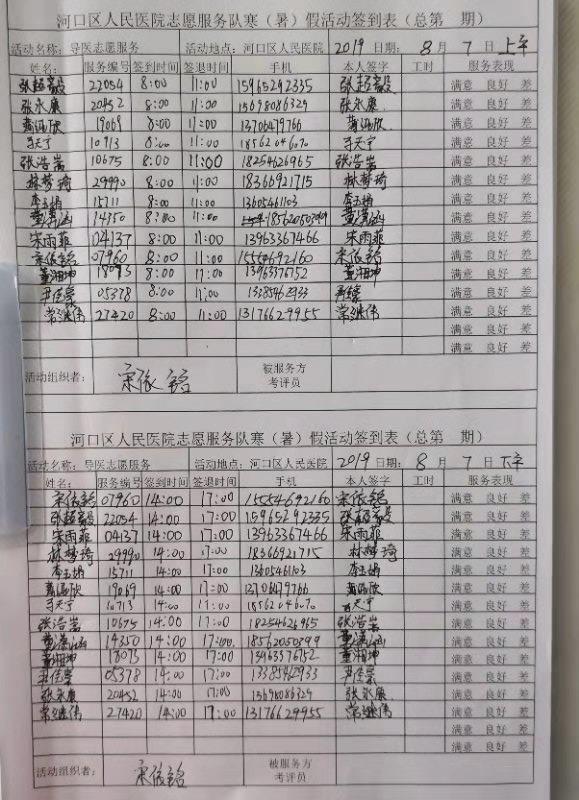 河口区人民医院志愿服务队寒（暑）假活动签到表（总第 期）
活动名称：导医志愿服务 活动地点：河口区人民医院 2019 日期： 8 月 7 日 上午
姓名： 服务编号 签到时间 签退时间 手机 本人签字 工时 服务表现
张超毅 22054 8:00 11:00 15965292335 张超毅 满意 良好 差
张永康 20452 8:00 11:00 15698086329 张永康 满意 良好 差
19069 8:00 11:00 13706479766 满意 良好 差
于天宁 10713 8:00 11:00 18562046070 于天宁 满意 良好 差
张浩嵩 10675 8:00 11:00 18254626965 张浩嵩 满意 良好 差
林梦琦 29990 8:00 11:00 18366921715 林梦琦 满意 良好 差
李玉娟 15711 8:00 11:00 13605461103 李玉娟 满意 良好 差
14350 8:00 11:00 满意 良好 差
宋雨菲 04137 8:00 11:00 13963367466 宋雨菲 满意 良好 差
宋依铭 07960 8:00 11:00 15554692160 宋依铭 满意 良好 差
董湘坤 18093 8:00 11:00 13963376752 董湘坤 满意 良好 差
尹佳豪 05378 8:00 11:00 13385462933 满意 良好 差
常继伟 27420 8:00 11:00 13176629955 常继伟 满意 良好 差
满意 良好 差
满意 良好 差
活动组织者： 宋依铭 被服务方考评员
河口区人民医院志愿服务队寒（暑）假活动签到表（总第 期）
活动名称：导医志愿服务 活动地点：河口区人民医院 2019 日期： 8 月 7 日 下午
姓名： 服务编号 签到时间 签退时间 手机 本人签字 工时 服务表现
宋依铭 07960 14:00 17:00 15554692160 宋依铭 满意 良好 差
张超毅 22054 14:00 17:00 15965292335 张超毅 满意 良好 差
宋雨菲 04137 14:00 17:00 13963367466 宋雨菲 满意 良好 差
林梦琦 29990 14:00 17:00 18366921715 林梦琦 满意 良好 差
李玉娟 15711 14:00 17:00 13605461103 李玉娟 满意 良好 差
19069 14:00 17:00 13706479766 满意 良好 差
于天宁 10713 14:00 17:00 18562046070 于天宁 满意 良好 差
张浩嵩 10675 14:00 17:00 18254626965 张浩嵩 满意 良好 差
14350 14:00 17:00 18562050399 满意 良好 差
董湘坤 18093 14:00 17:00 13963376752 董湘坤 满意 良好 差
尹佳豪 05378 14:00 17:00 13385462933 尹佳豪 满意 良好 差
张永康 20452 14:00 17:00 15698086329 张永康 满意 良好 差
常继伟 27420 14:00 17:00 13176629955 常继伟 满意 良好 差
满意 良好 差
满意 良好 差
活动组织者： 宋依铭 被服务方考评员